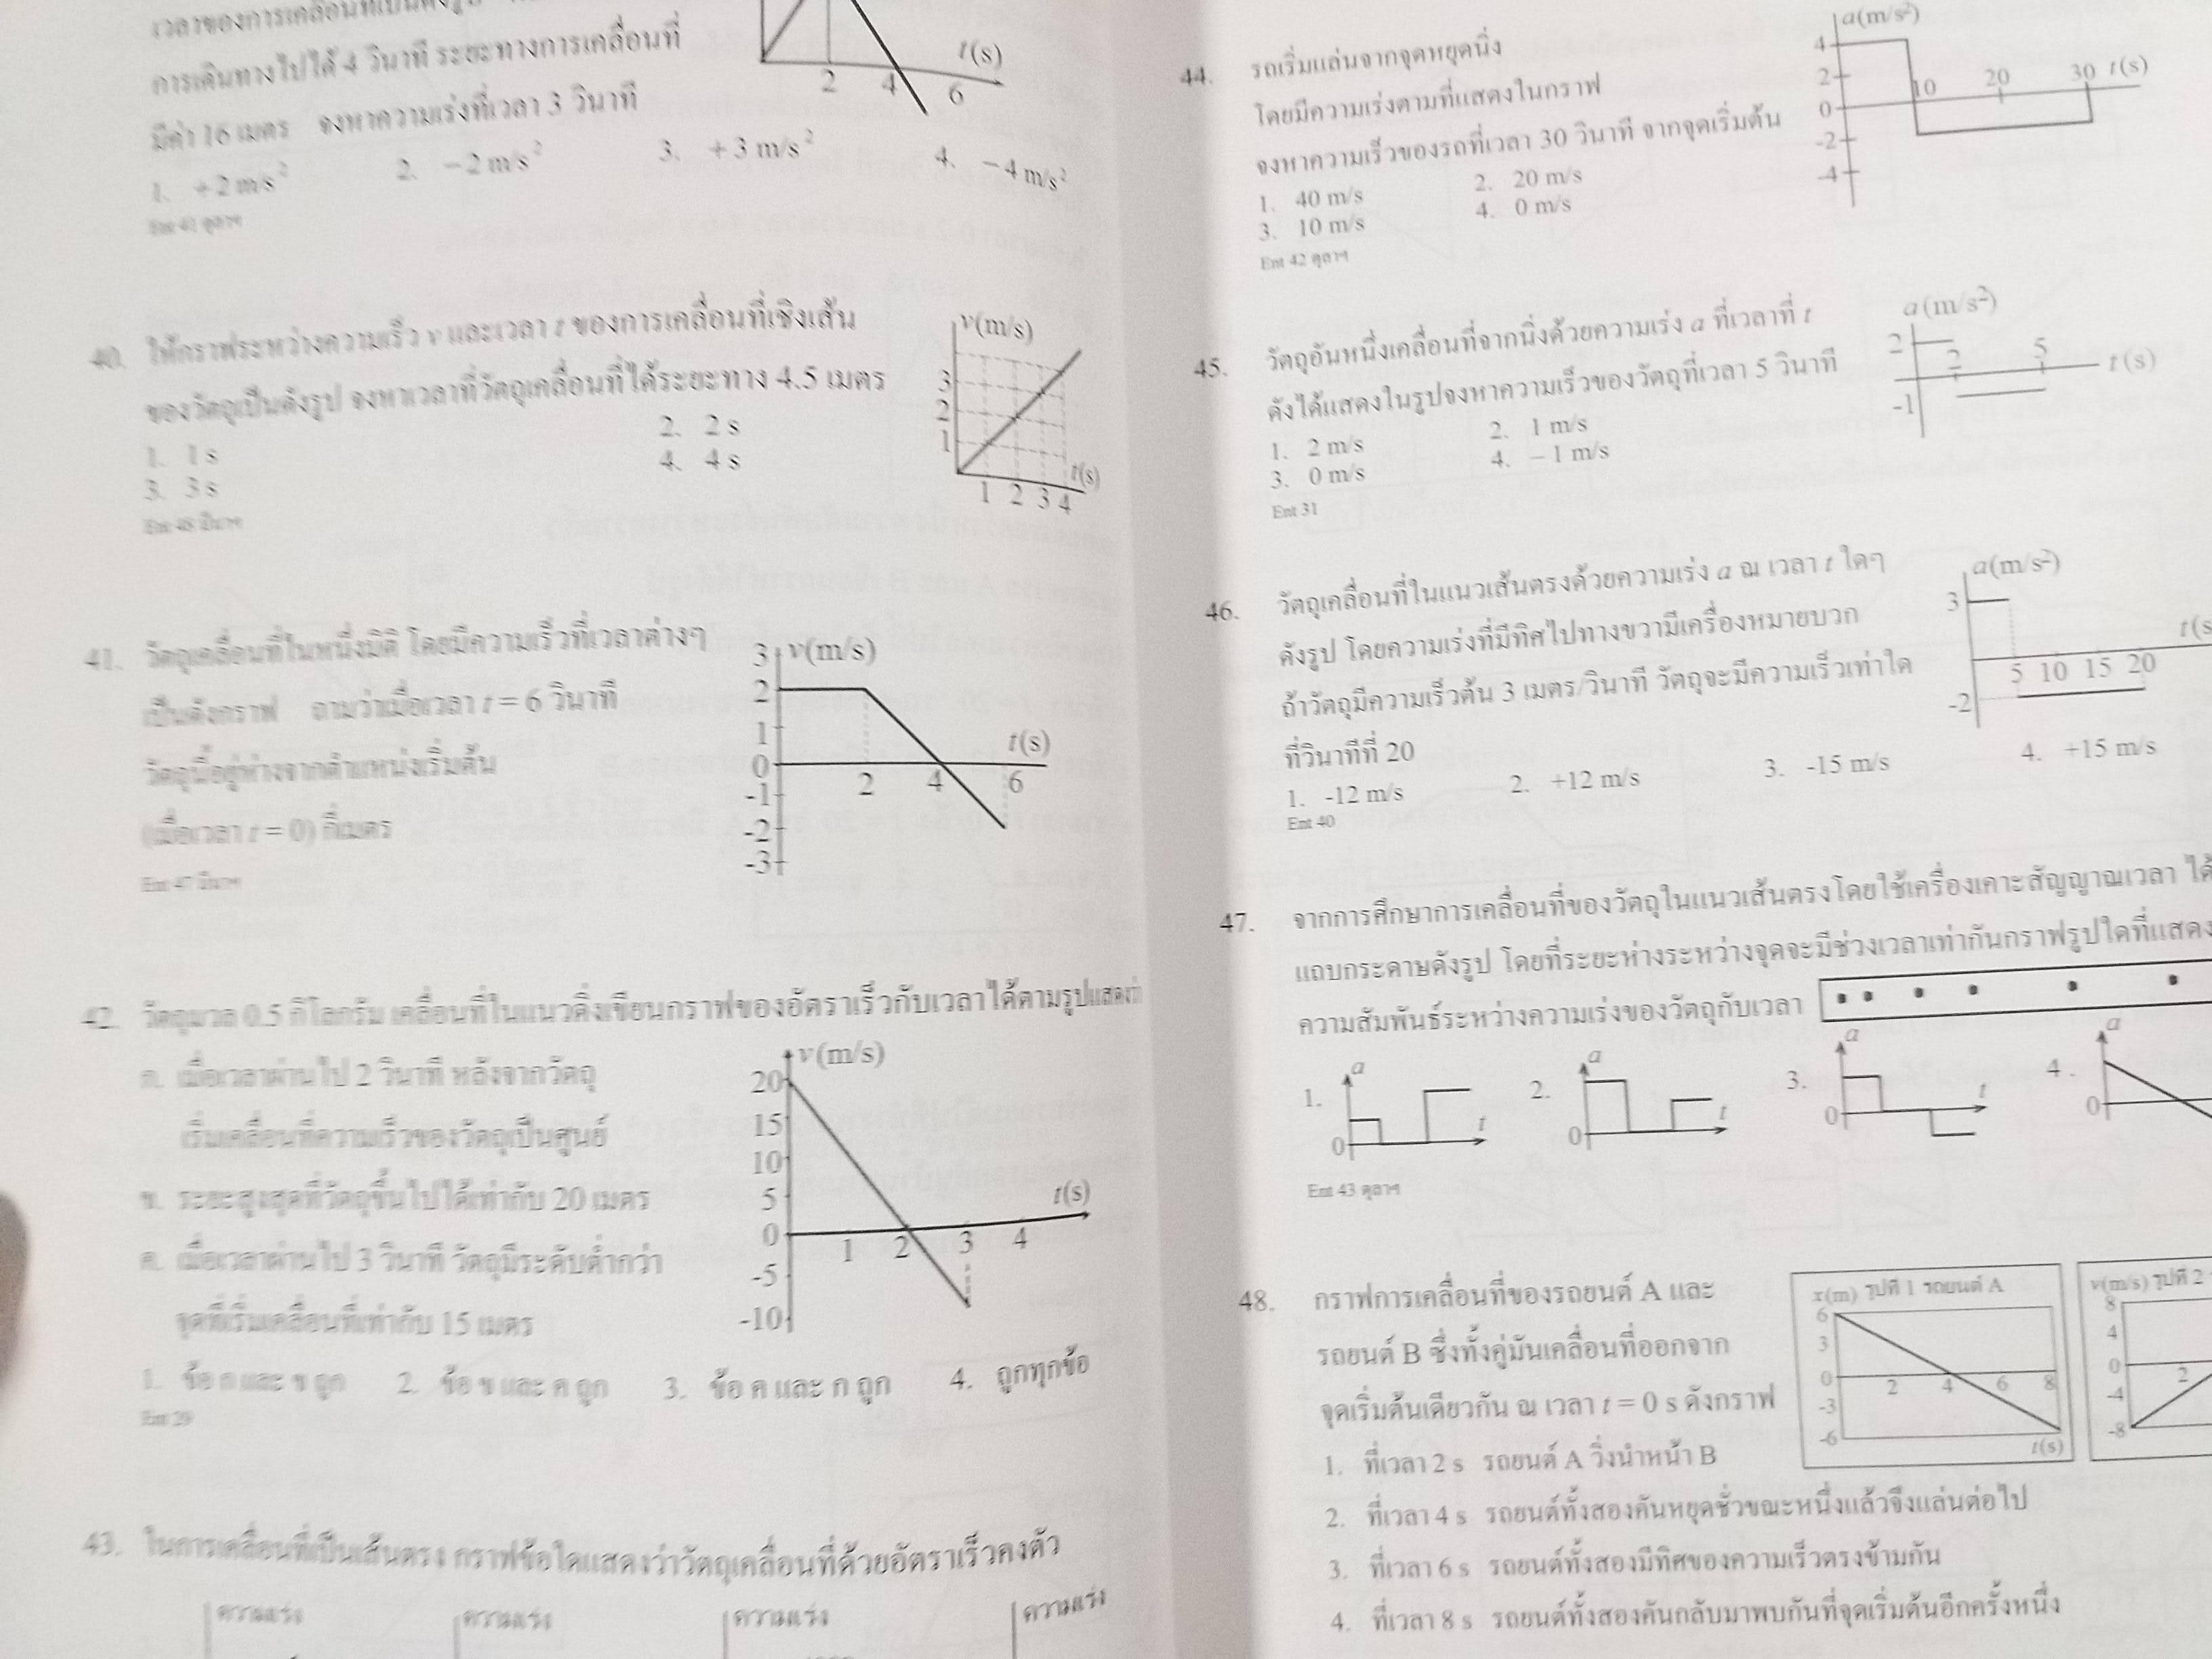 เวลาของการเคลื่อนที่เป็นดังรูป
การเดินทางไปได้ 4 วินาที ระยะทางการเคลื่อนที่
มีค่า 16 เมตร จงหาความเร่งที่เวลา 3 วินาที
1. +2 m/s² 2. −2 m/s² 3. +3 m/s² 4. −4 m/s²
Ent 41 ตุลาฯ
t(s)
2 4 6
40. ให้กราฟระหว่างความเร็ว v และเวลา t ของการเคลื่อนที่เชิงเส้น
ของวัตถุเป็นดังรูป จงหาเวลาที่วัตถุเคลื่อนที่ได้ระยะทาง 4.5 เมตร
1. 1 s 2. 2 s
3. 3 s 4. 4 s
Ent 48 มีนาฯ
v(m/s)
3
2
1
t(s)
1 2 3 4
41. วัตถุเคลื่อนที่ในหนึ่งมิติ โดยมีความเร็วที่เวลาต่างๆ
เป็นดังกราฟ ถามว่าเมื่อเวลา t = 6 วินาที
วัตถุนี้อยู่ห่างจากตำแหน่งเริ่มต้น
(เมื่อเวลา t = 0) กี่เมตร
Ent 47 มีนาฯ
3 v(m/s)
2
1
0
-1
-2
-3
t(s)
2 4 6
42. วัตถุมวล 0.5 กิโลกรัม เคลื่อนที่ในแนวดิ่งเขียนกราฟของอัตราเร็วกับเวลาได้ตามรูปแสดงว่า
ก. เมื่อเวลาผ่านไป 2 วินาที หลังจากวัตถุ
เริ่มเคลื่อนที่ความเร็วของวัตถุเป็นศูนย์
ข. ระยะสูงสุดที่วัตถุขึ้นไปได้เท่ากับ 20 เมตร
ค. เมื่อเวลาผ่านไป 3 วินาที วัตถุมีระดับต่ำกว่า
จุดที่เริ่มเคลื่อนที่เท่ากับ 15 เมตร
1. ข้อ ก และ ข ถูก 2. ข้อ ข และ ค ถูก 3. ข้อ ค และ ก ถูก 4. ถูกทุกข้อ
Ent 29
v(m/s)
20
15
10
5
0
-5
-10
t(s)
1 2 3 4
43. ในการเคลื่อนที่เป็นเส้นตรง กราฟข้อใดแสดงว่าวัตถุเคลื่อนที่ด้วยอัตราเร็วคงตัว
ความเร่ง ความเร่ง ความเร่ง ความเร่ง
44. รถเริ่มแล่นจากจุดหยุดนิ่ง
โดยมีความเร่งตามที่แสดงในกราฟ
จงหาความเร็วของรถที่เวลา 30 วินาที จากจุดเริ่มต้น
1. 40 m/s 2. 20 m/s
3. 10 m/s 4. 0 m/s
Ent 42 ตุลาฯ
a(m/s²)
4
2
0
-2
-4
10 20 30 t(s)
45. วัตถุอันหนึ่งเคลื่อนที่จากนิ่งด้วยความเร่ง a ที่เวลาที่ t
ดังได้แสดงในรูปจงหาความเร็วของวัตถุที่เวลา 5 วินาที
1. 2 m/s 2. 1 m/s
3. 0 m/s 4. – 1 m/s
Ent 31
a (m/s²)
2
-1
2 5 t (s)
46. วัตถุเคลื่อนที่ในแนวเส้นตรงด้วยความเร่ง a ณ เวลา t ใดๆ
ดังรูป โดยความเร่งที่มีทิศไปทางขวามีเครื่องหมายบวก
ถ้าวัตถุมีความเร็วต้น 3 เมตร/วินาที วัตถุจะมีความเร็วเท่าใด
ที่วินาทีที่ 20
1. -12 m/s 2. +12 m/s 3. -15 m/s 4. +15 m/s
Ent 40
a(m/s²)
3
-2
t(s
5 10 15 20
47. จากการศึกษาการเคลื่อนที่ของวัตถุในแนวเส้นตรงโดยใช้เครื่องเคาะสัญญาณเวลา ได้
แถบกระดาษดังรูป โดยที่ระยะห่างระหว่างจุดจะมีช่วงเวลาเท่ากันกราฟรูปใดที่แสดง
ความสัมพันธ์ระหว่างความเร่งของวัตถุกับเวลา
1. a 0 t 2. a 0 t 3. a 0 t 4. a 0
Ent 43 ตุลาฯ
48. กราฟการเคลื่อนที่ของรถยนต์ A และ
รถยนต์ B ซึ่งทั้งคู่มันเคลื่อนที่ออกจาก
จุดเริ่มต้นเดียวกัน ณ เวลา t = 0 s ดังกราฟ
1. ที่เวลา 2 s รถยนต์ A วิ่งนำหน้า B
2. ที่เวลา 4 s รถยนต์ทั้งสองคันหยุดชั่วขณะหนึ่งแล้วจึงแล่นต่อไป
3. ที่เวลา 6 s รถยนต์ทั้งสองมีทิศของความเร็วตรงข้ามกัน
4. ที่เวลา 8 s รถยนต์ทั้งสองคันกลับมาพบกันที่จุดเริ่มต้นอีกครั้งหนึ่ง
x(m) รูปที่ 1 รถยนต์ A
6
3
0
-3
-6
2 4 6 8
t(s)
v(m/s) รูปที่ 2
8
4
0
-4
-8
2